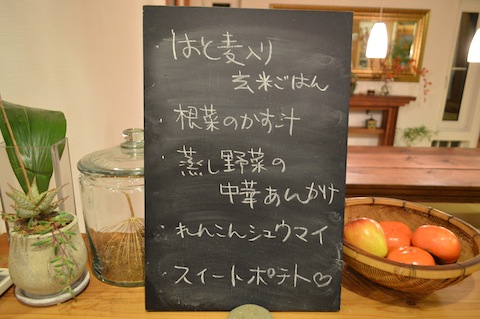 ・はと麦入り
玄米ごはん
・根菜のかす汁
・蒸し野菜の
中華あんかけ
・れんこんシュウマイ
・スイートポテト♡